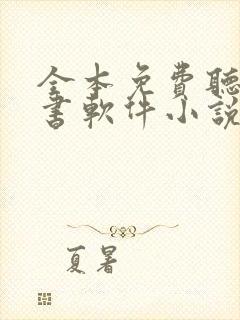 全本免費聽
書軟件小說
夏暑